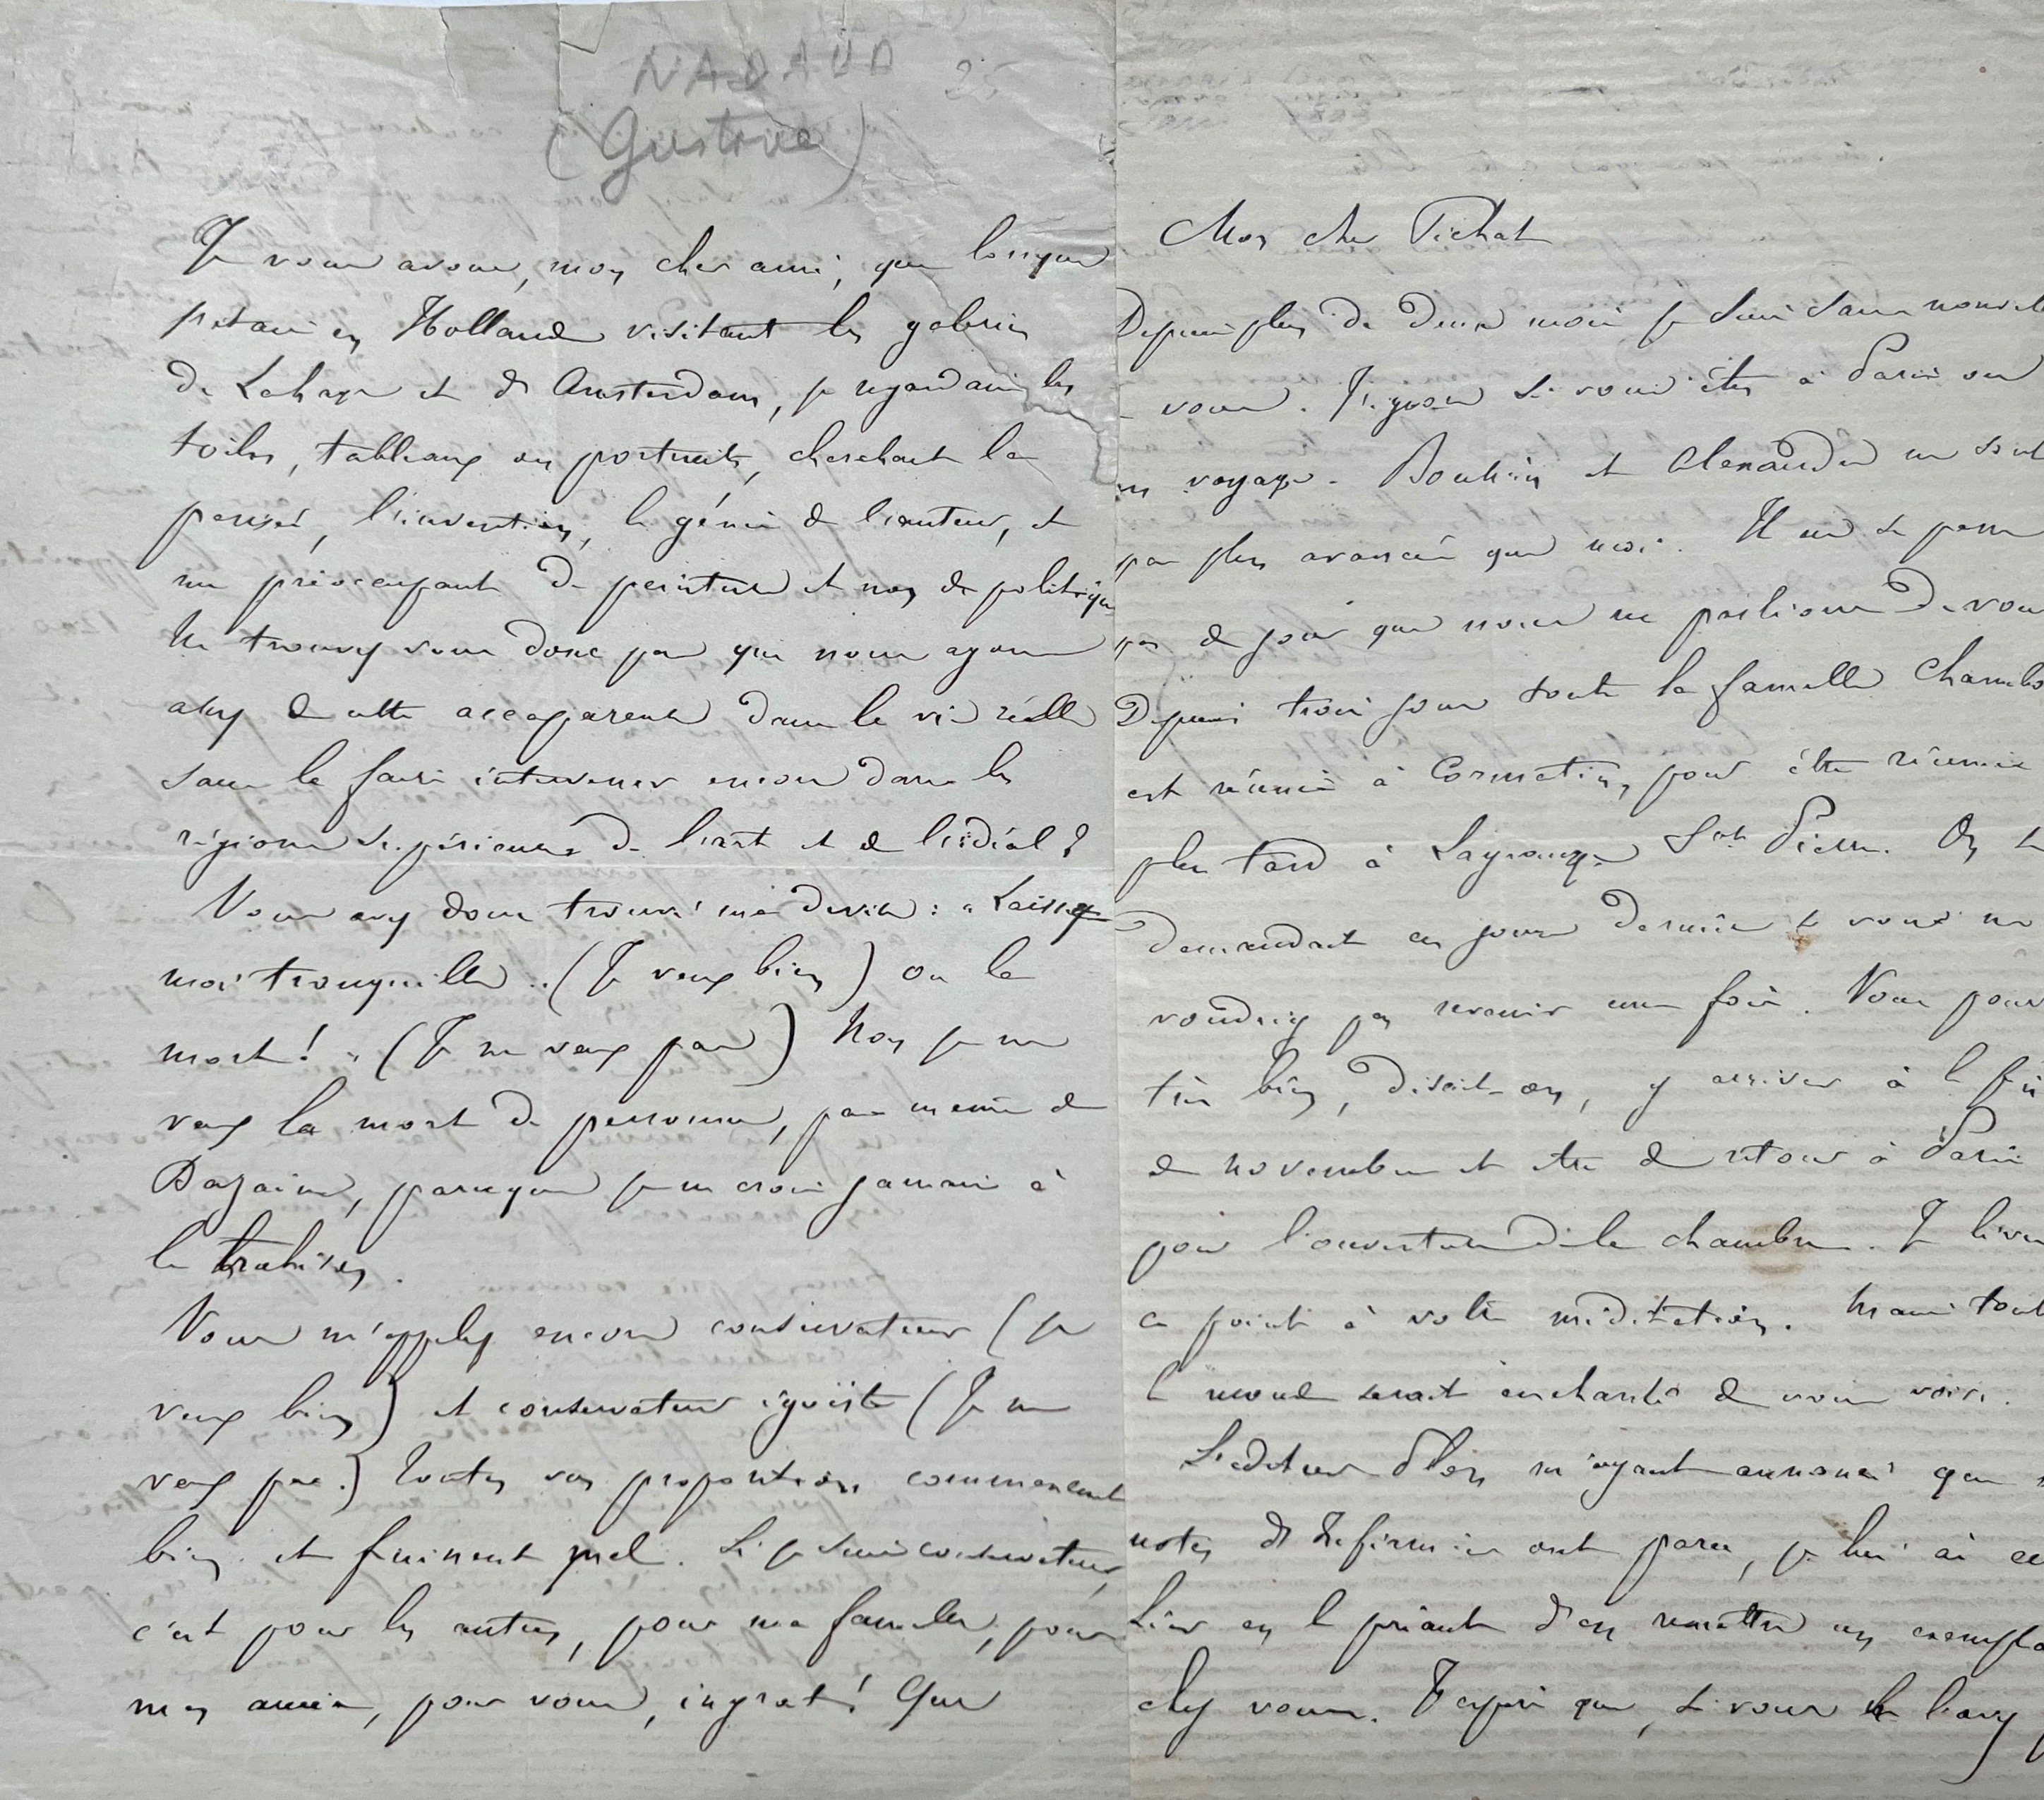 NADAUD 25
(Gustave)
Je vous avoue, mon cher ami, que lorsque
j'étais en Hollande visitant les galeries
de Lahaye et d'Amsterdam, je regardais les
toiles, tableaux ou portraits, cherchant la
pensée, l'invention, le génie de l'auteur, et
me préoccupant de peinture et non de politique
Ne trouvez vous donc pas que nous ayons
assez de cette accapareuse dans la vie réelle
sans la faire intervenir encore dans les
régions supérieures de l'art et de l'idéal ?
Vous avez donc trouvé ma devise : « Laissez
moi tranquille .. (Je veux bien) ou la
mort ! » (Je ne veux pas) Non je ne
veux la mort de personne, pas même de
Bazaine, parceque je ne crois jamais à
la trahison.
Vous m'appelez encore conservateur (je
veux bien) et conservateur égoïste (Je ne
veux pas.) Toutes vos propositions commencent
bien et finissent mal. Si je suis conservateur,
c'est pour les autres, pour ma famille, pour
mes amis, pour vous, ingrat ! Que
Mon cher Pichat
Depuis plus de deux mois je suis sans nouvelles
vous. J'ignore si vous êtes à Paris ou
en voyage. Bouhin et Alexandre ne sont
pas plus avancés que moi. Il ne se passe
pas de jour que nous ne parlions de vous
Depuis trois jours toute la famille
est réunie à Cormatin, pour être réunie
plus tard à Lagrange St Pierre. On se
demandait ces jours derniers si vous ne
voudriez pas revenir une fois. Vous pour
très bien, disait-on, y arriver à la fin
de novembre et être de retour à Paris
pour l'ouverture de la chambre. Je livre
ce point à votre méditation. Mais tout
le monde serait enchanté de vous voir.
L'éditeur Plon m'ayant annoncé que
notes d'infirmier ont paru, je lui ai
en le priant d'en remettre un exempla
chez vous. J'espère que, si vous l'avez